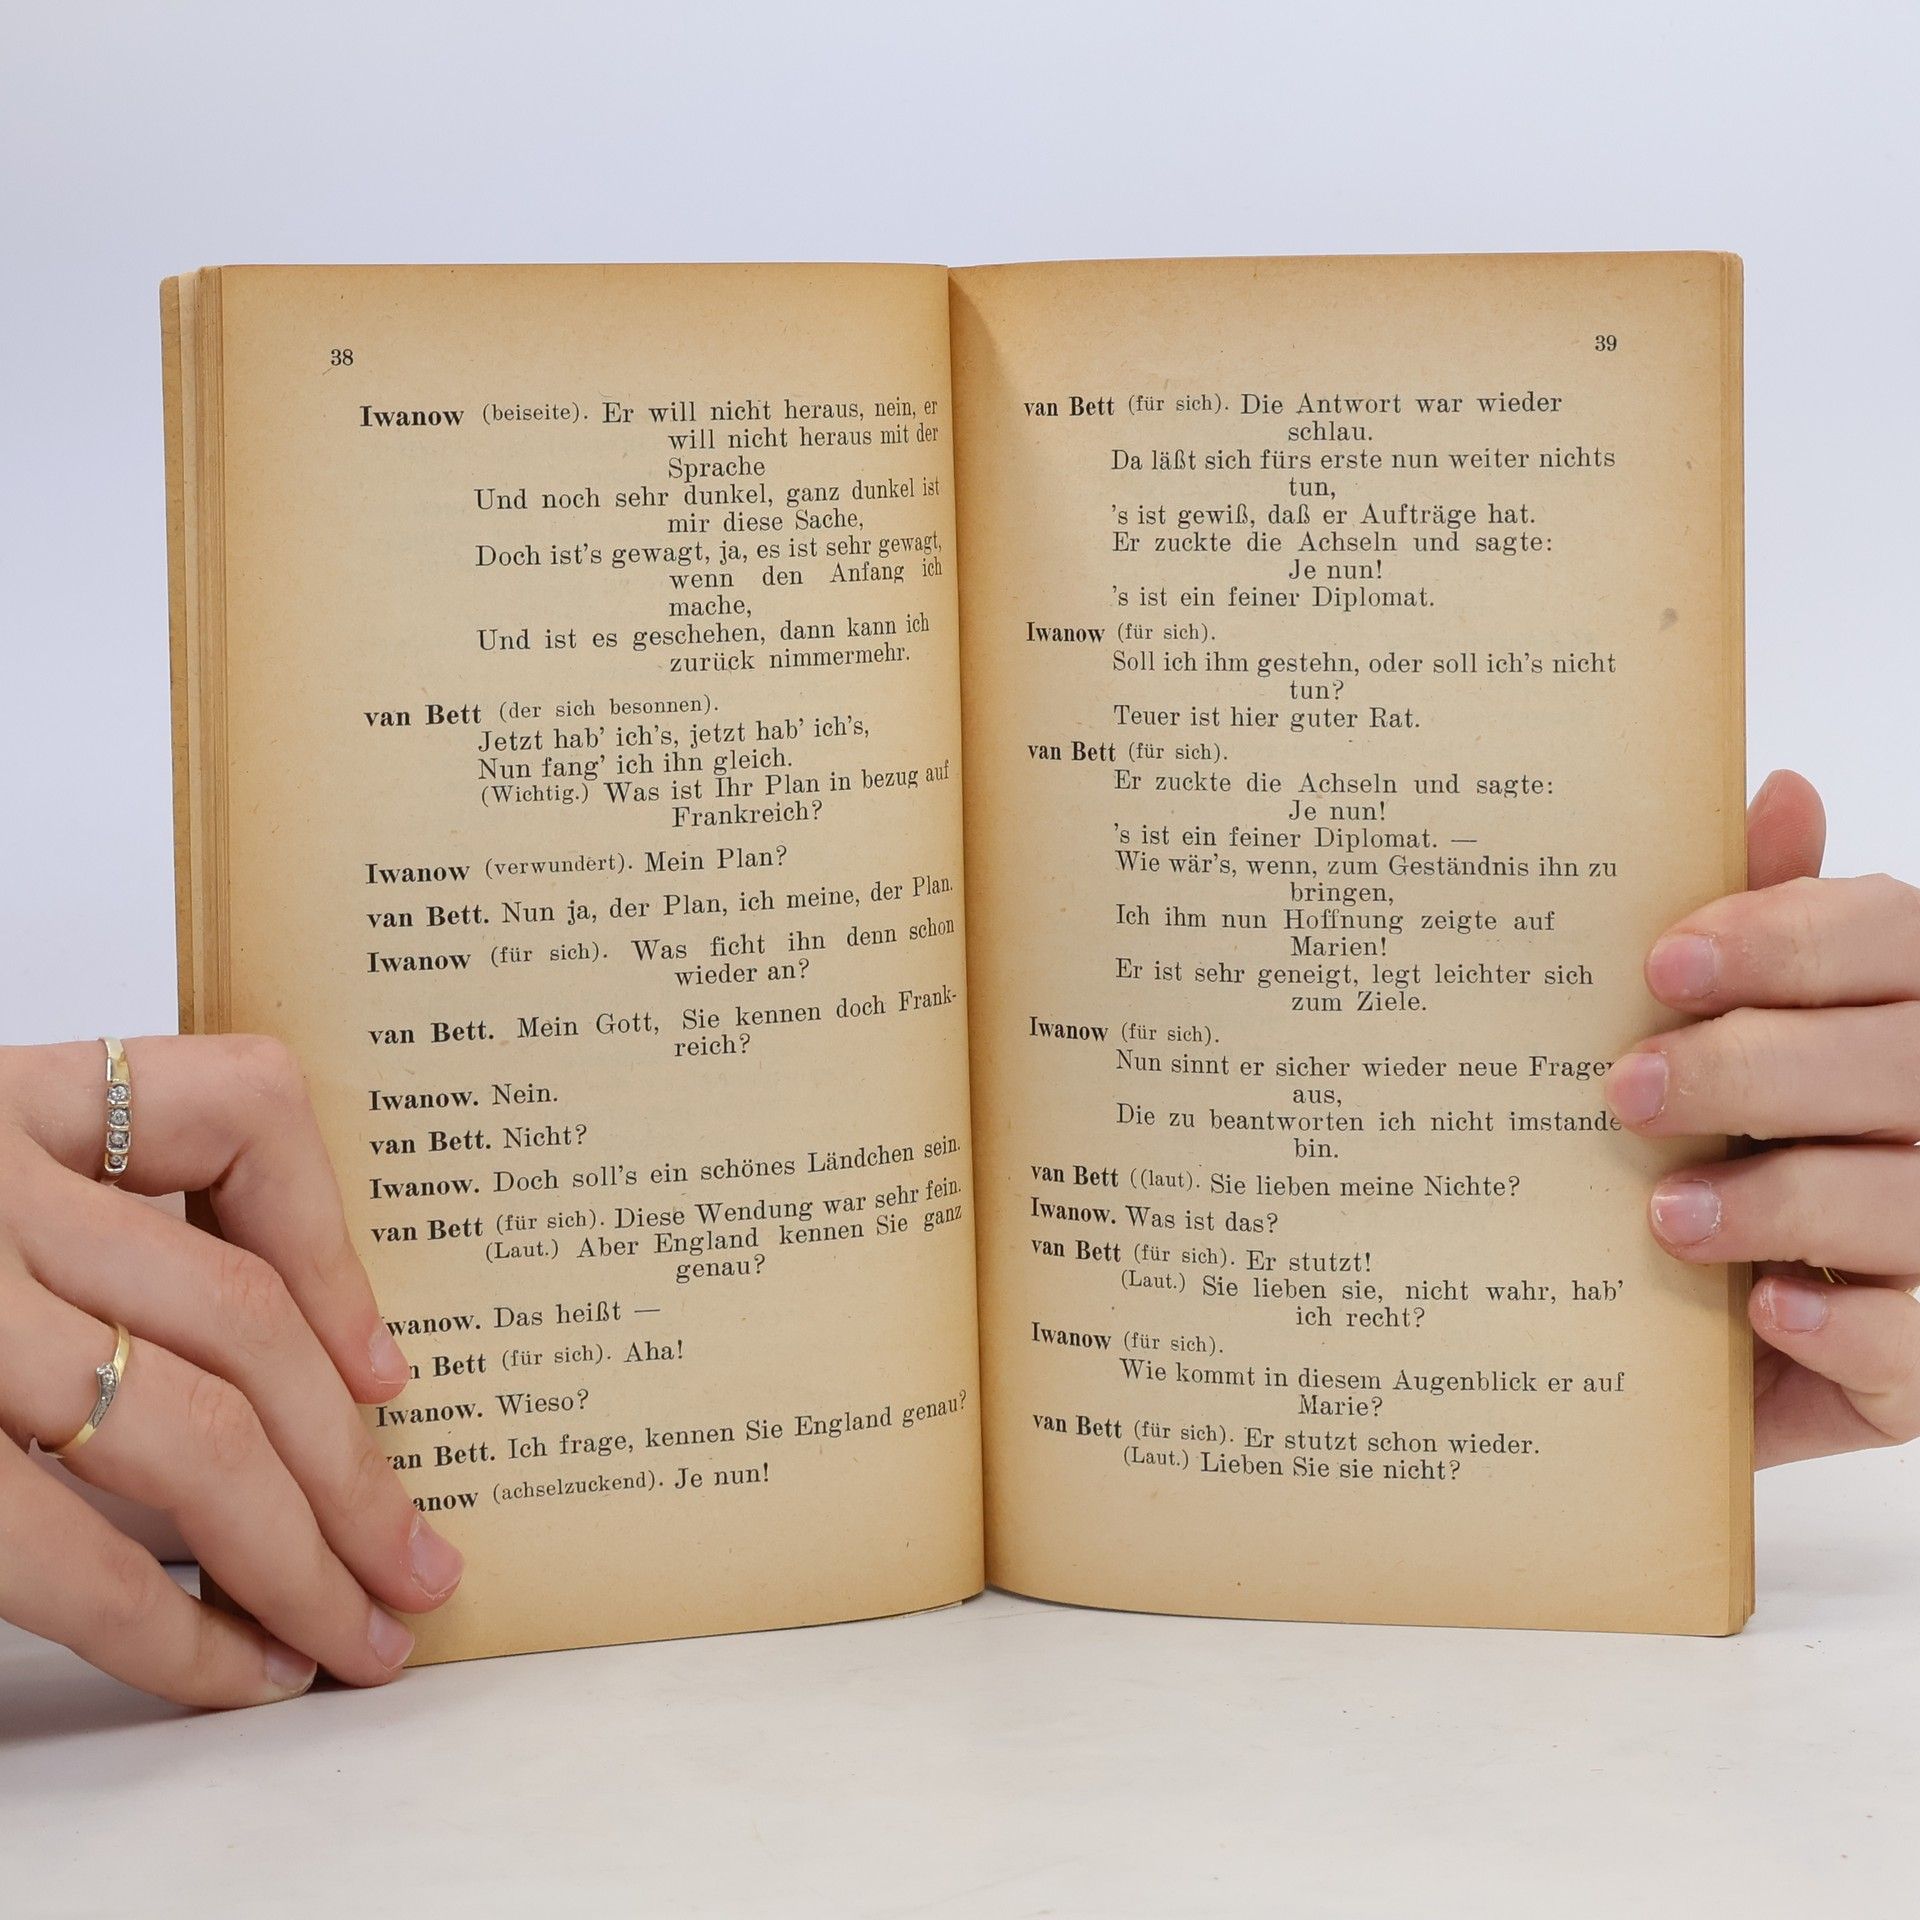 38
Iwanow (beiseite). Er will nicht heraus, nein, er
will nicht heraus mit der
Sprache
Und noch sehr dunkel, ganz dunkel ist
mir diese Sache,
Doch ist's gewagt, ja, es ist sehr gewagt,
wenn den Anfang ich
mache,
Und ist es geschehen, dann kann ich
zurück nimmermehr.
van Bett (der sich besonnen).
Jetzt hab' ich's, jetzt hab' ich's,
Nun fang' ich ihn gleich.
(Wichtig.) Was ist Ihr Plan in bezug auf
Frankreich?
Iwanow (verwundert). Mein Plan?
van Bett. Nun ja, der Plan, ich meine, der Plan.
Iwanow (für sich). Was ficht ihn denn schon
wieder an?
van Bett. Mein Gott, Sie kennen doch Frank-
reich?
Iwanow. Nein.
van Bett. Nicht?
Iwanow. Doch soll's ein schönes Ländchen sein.
van Bett (für sich). Diese Wendung war sehr fein.
(Laut.) Aber England kennen Sie ganz
genau?
wanow. Das heißt —
n Bett (für sich). Aha!
Iwanow. Wieso?
van Bett. Ich frage, kennen Sie England genau?
anow (achselzuckend). Je nun!
39
van Bett (für sich). Die Antwort war wieder
schlau.
Da läßt sich fürs erste nun weiter nichts
tun,
's ist gewiß, daß er Aufträge hat.
Er zuckte die Achseln und sagte:
Je nun!
's ist ein feiner Diplomat.
Iwanow (für sich).
Soll ich ihm gestehn, oder soll ich's nicht
tun?
Teuer ist hier guter Rat.
van Bett (für sich).
Er zuckte die Achseln und sagte:
Je nun!
's ist ein feiner Diplomat. —
Wie wär's, wenn, zum Geständnis ihn zu
bringen,
Ich ihm nun Hoffnung zeigte auf
Marien!
Er ist sehr geneigt, legt leichter sich
zum Ziele.
Iwanow (für sich).
Nun sinnt er sicher wieder neue Fragen
aus,
Die zu beantworten ich nicht imstande
bin.
van Bett ((laut). Sie lieben meine Nichte?
Iwanow. Was ist das?
van Bett (für sich). Er stutzt!
(Laut.) Sie lieben sie, nicht wahr, hab'
ich recht?
Iwanow (für sich).
Wie kommt in diesem Augenblick er auf
Marie?
van Bett (für sich). Er stutzt schon wieder.
(Laut.) Lieben Sie sie nicht?